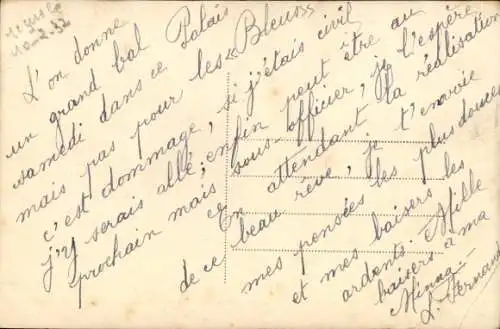 10-2-32
L'on donne
un grand bal Palais
samedi dans ce
mais pas pour les «Bleus»
c'est dommage, si j'étais civil
j'y serais allé; enfin peut être au
prochain mais sous-officier, je l'espère.
En attendant la réalisation
de ce beau rêve, je t'envoie
mes pensées les plus douces
et mes baisers les
ardents. Mille
baisers à ma
Minna